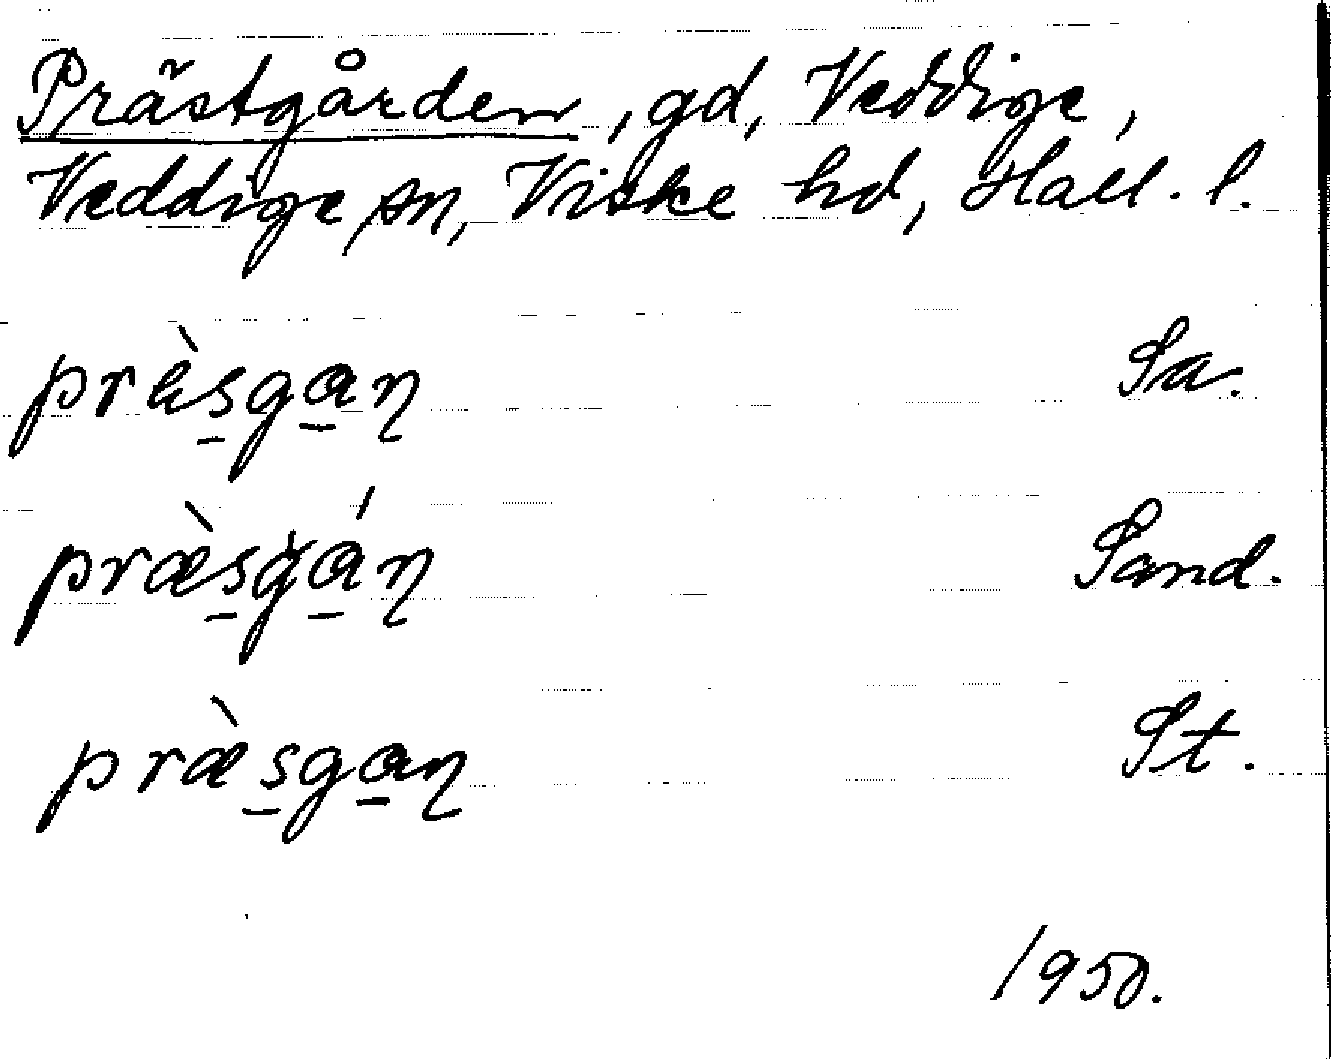 Prästgården, gd, Veddige,
Veddige sn, Viske hd, Hall. l.
prὲs̱ga̱ɳ Sa.
præ̀s̱gá̱ɳ Sand.
præ̀s̱ga̱ɳ St.
1950.